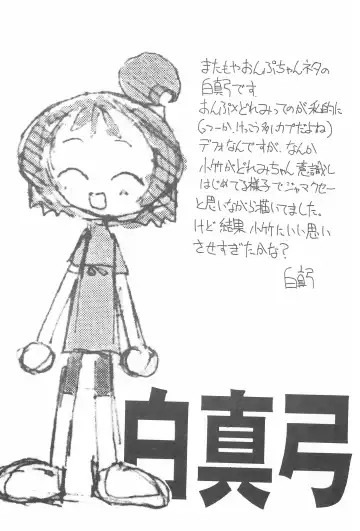 またもやおんぷちゃんネタの
白真弓です
おんぷ×どれみってのが私的に
(つーか、けっこう有力カプだよね)
デフォなんですが、なんか
小竹がどれみちゃん意識し
はじめてる様子でジャマクセー
と思いながら描いてました。
けど結果小竹にいい思い
させすぎたかな?
白真弓
白真弓